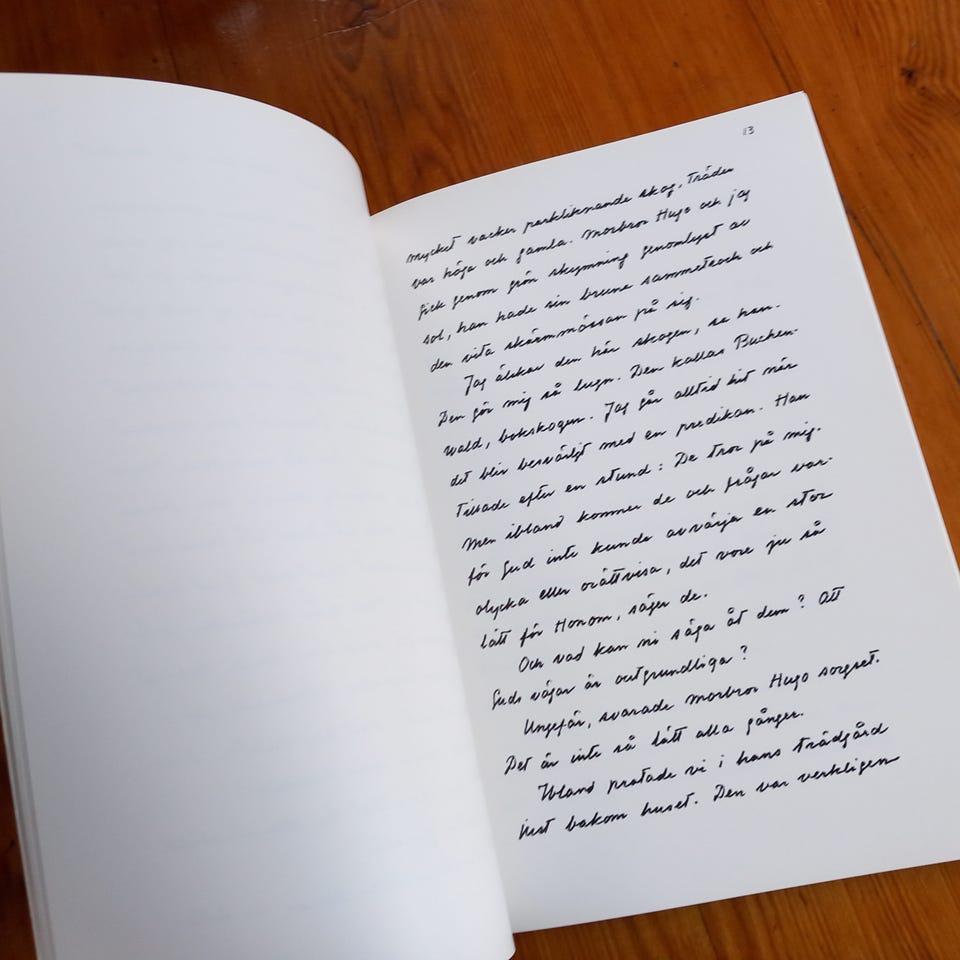 113
mycket vacker parkliknande skog. Träden
var höga och gamla. Morbror Hugo och jag
gick genom grön skymning genomlyst av
sol, han hade sin bruna sammetsrock och
den vita skärmmössan på sig.
Jag älskar den här skogen, sa han.
Den gör mig så lugn. Den kallas Buchen-
wald, bokskogen. Jag går alltid hit när
det blir besvärligt med en predikan. Han
tillade efter en stund: De tror på mig.
Men ibland kommer de och frågar var-
för Gud inte kunde avvärja en stor
olycka eller orättvisa, det vore ju så
lätt för Honom, säger de.
Och vad kan ni säga åt dem? Att
Guds vägar är outgrundliga?
Ungefär, svarade Morbror Hugo sorgset.
Det är inte så lätt alla gånger.
Ibland pratade vi i hans trädgård
just bakom huset. Den var verkligen